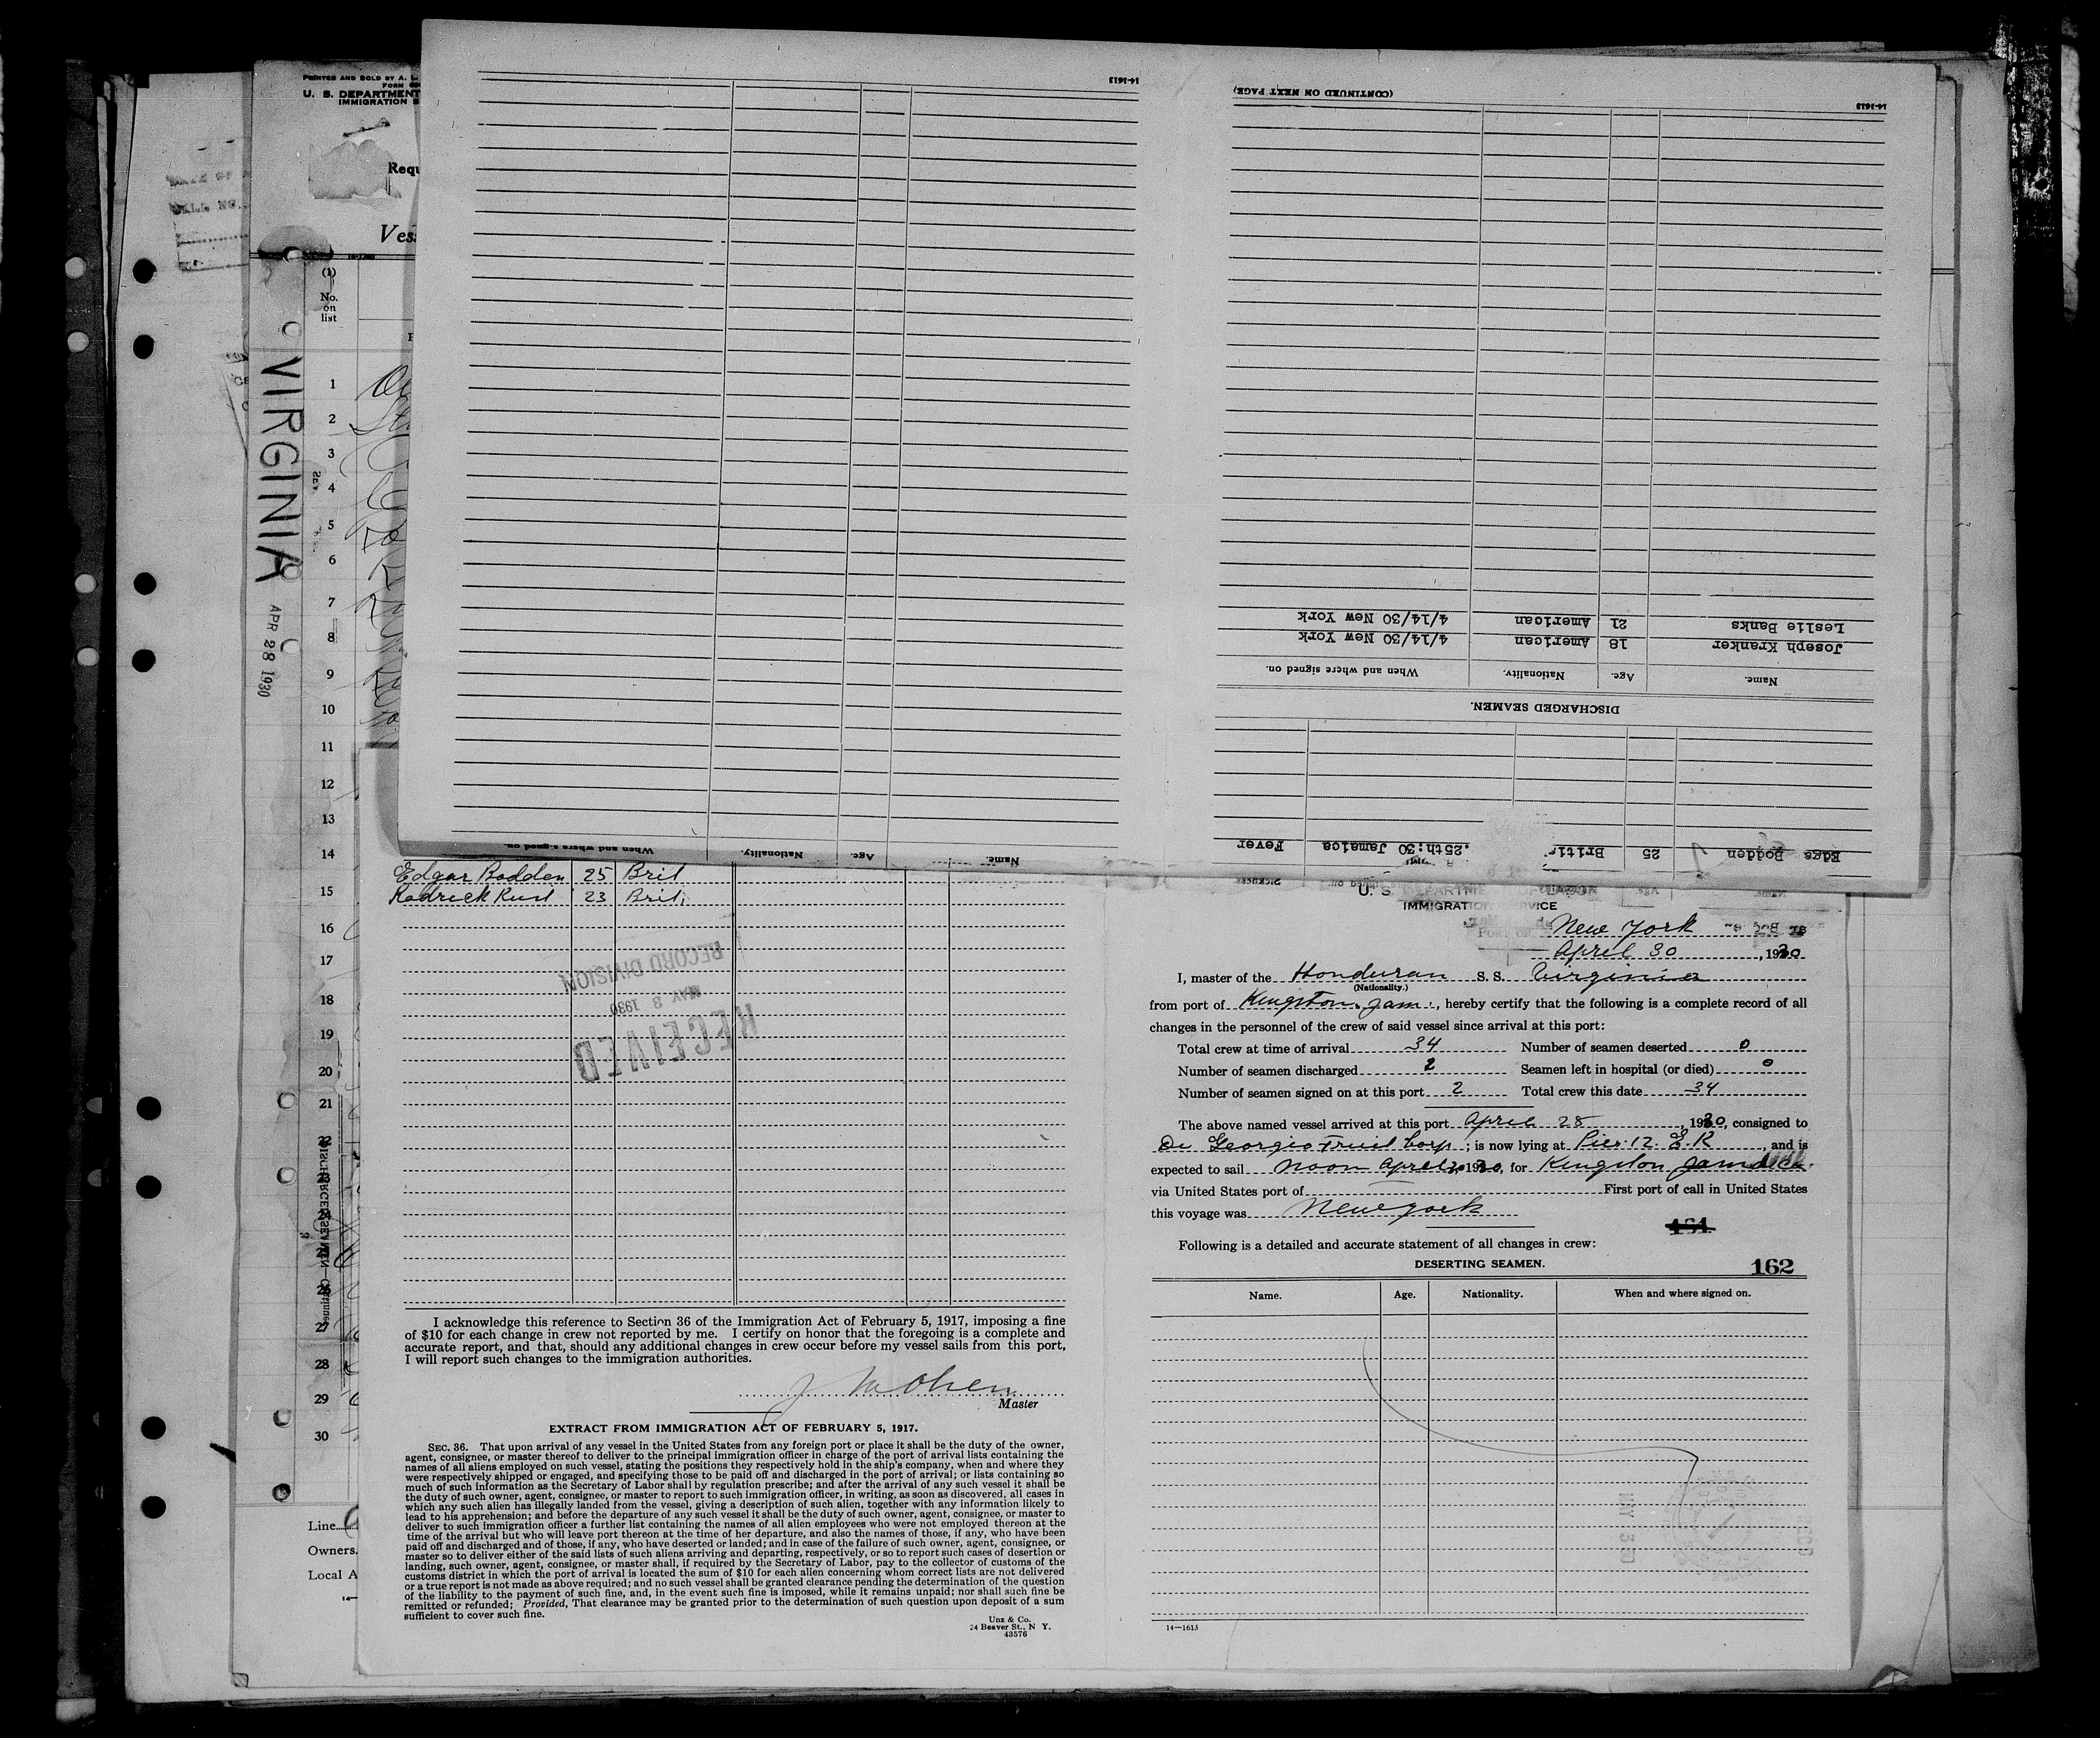 PRINTED AND SOLD BY A.
U. S. DEPARTMENT
IMMIGRATION S
Requ
Ves
VIRGINIA
APR 28 1930
(1)
No.
on
list
1
2
3
4
5
6
7
8
9
10
11
12
13
14
15
16
17
18
19
20
21
22
23
24
25
26
27
28
29
30
Line
Owners.
Local A
14-1613
When and where signed on. Nationality. Age. Name.
14-1613
(CONTINUED ON NEXT PAGE)
Leslie Banks 21 American 4/14/30 New York
Joseph Kranker 18 American 4/14/30 New York
Name. Age. Nationality. When and where signed on.
DISCHARGED SEAMEN.
Edga Bodden 25 Britis .25th:30 Jamaica Fever
Edgar Bodden 25 Brit
Rodrick Rust 23 Brit.
RECEIVED
MAY 3 1930
RECORD DIVISION
I acknowledge this reference to Section 36 of the Immigration Act of February 5, 1917, imposing a fine
of $10 for each change in crew not reported by me. I certify on honor that the foregoing is a complete and
accurate report, and that, should any additional changes in crew occur before my vessel sails from this port,
I will report such changes to the immigration authorities.
Master
EXTRACT FROM IMMIGRATION ACT OF FEBRUARY 5, 1917.
SEC. 36. That upon arrival of any vessel in the United States from any foreign port or place it shall be the duty of the owner,
agent, consignee, or master thereof to deliver to the principal immigration officer in charge of the port of arrival lists containing the
names of all aliens employed on such vessel, stating the positions they respectively hold in the ship's company, when and where they
were respectively shipped or engaged, and specifying those to be paid off and discharged in the port of arrival; or lists containing so
much of such information as the Secretary of Labor shall by regulation prescribe; and after the arrival of any such vessel it shall be
the duty of such owner, agent, consignee, or master to report to such immigration officer, in writing, as soon as discovered, all cases in
which any such alien has illegally landed from the vessel, giving a description of such alien, together with any information likely to
lead to his apprehension; and before the departure of any such vessel it shall be the duty of such owner, agent, consignee, or master to
deliver to such immigration officer a further list containing the names of all alien employees who were not employed thereon at the
time of the arrival but who will leave port thereon at the time of her departure, and also the names of those, if any, who have been
paid off and discharged and of those, if any, who have deserted or landed; and in case of the failure of such owner, agent, consignee, or
master so to deliver either of the said lists of such aliens arriving and departing, respectively, or so to report such cases of desertion or
landing, such owner, agent, consignee, or master shall, if required by the Secretary of Labor, pay to the collector of customs of the
customs district in which the port of arrival is located the sum of $10 for each alien concerning whom correct lists are not delivered
or a true report is not made as above required; and no such vessel shall be granted clearance pending the determination of the question
of the liability to the payment of such fine, and, in the event such fine is imposed, while it remains unpaid; nor shall such fine be
remitted or refunded; Provided, That clearance may be granted prior to the determination of such question upon deposit of a sum
sufficient to cover such fine.
Unz & Co.
24 Beaver St., N Y.
43576
IMMIGRATION SERVICE
New York
April 30, 1930
I, master of the Honduran S. S. Virginia
(Nationality.)
from port of Kingston Jam., hereby certify that the following is a complete record of all
changes in the personnel of the crew of said vessel since arrival at this port:
Total crew at time of arrival 34 Number of seamen deserted 0
Number of seamen discharged 2 Seamen left in hospital (or died) 0
Number of seamen signed on at this port 2 Total crew this date 34
The above named vessel arrived at this port April 28, 1930, consigned to
Di Georgio Fruit Corp; is now lying at Pier 12 E. R, and is
expected to sail Noon April 30, 1930, for Kingston Jamaica
via United States port of First port of call in United States
this voyage was New York
161
Following is a detailed and accurate statement of all changes in crew:
DESERTING SEAMEN.
162
Name. Age. Nationality. When and where signed on.
14-1613